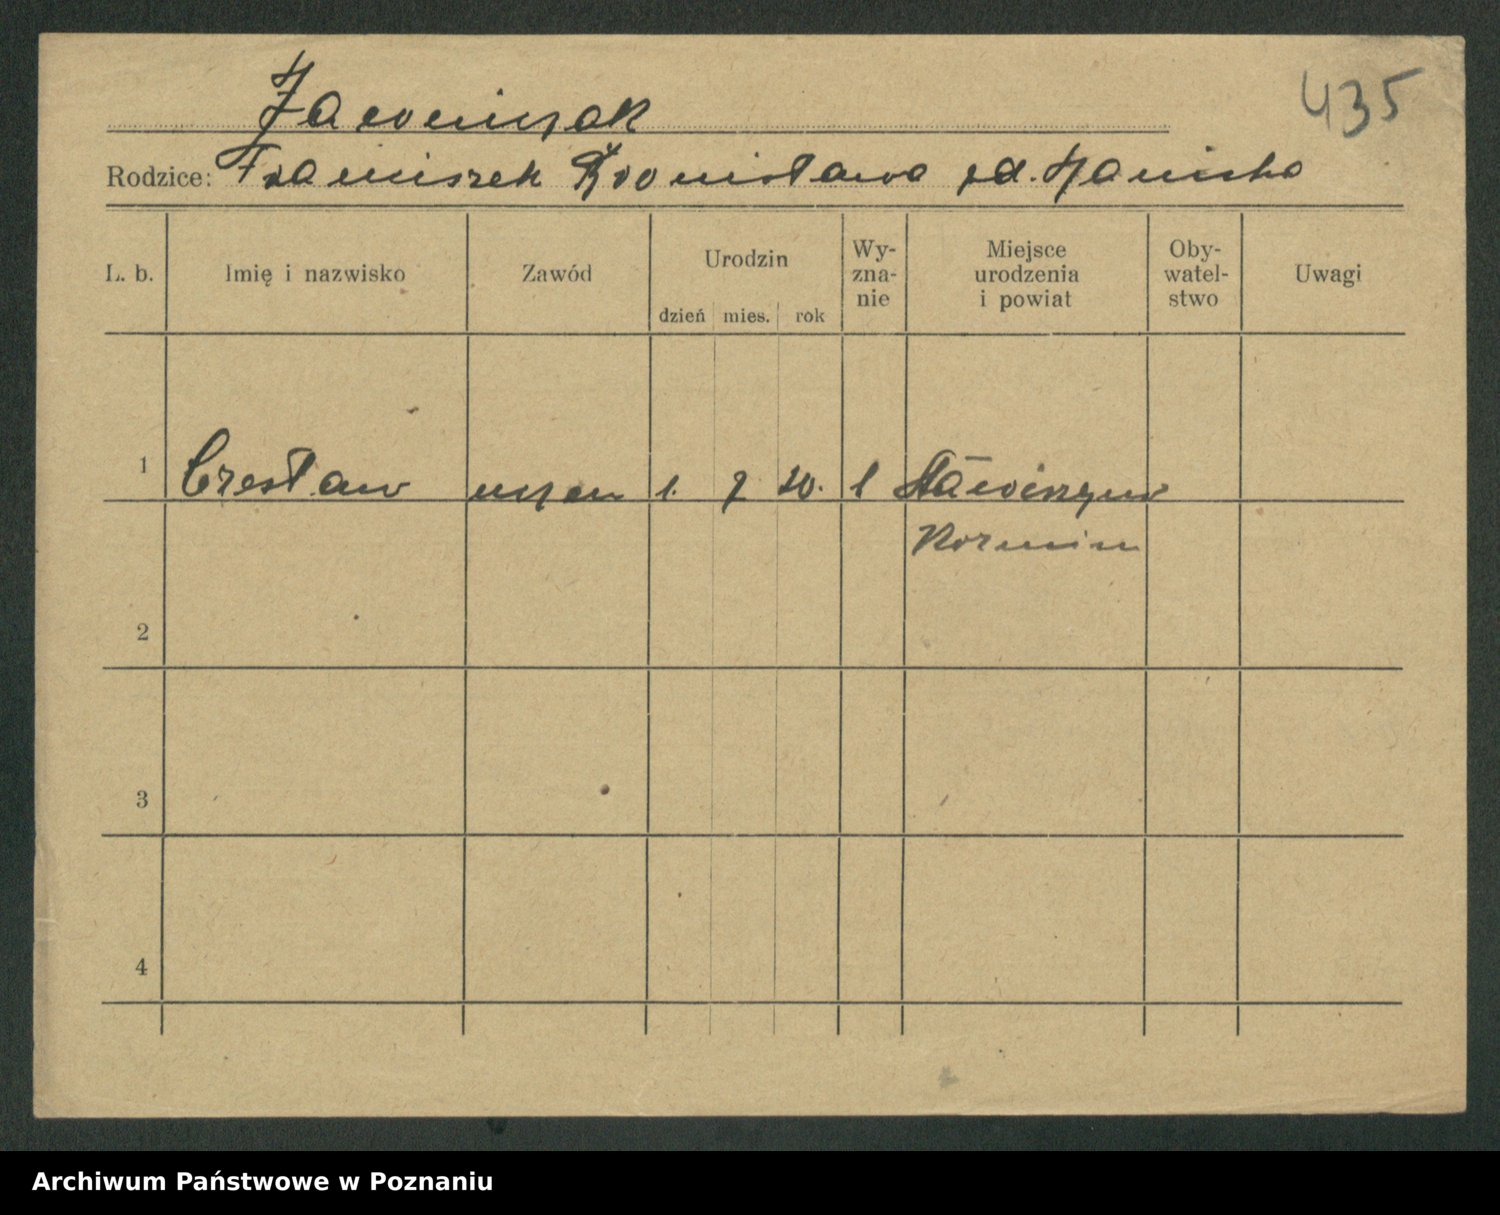 435
Rodzice: Franciszek Bronisława zd.
L. b. Imię i nazwisko Zawód Urodzin dzień mies. rok Wy-zna-nie Miejsce urodzenia i powiat Oby-watel-stwo Uwagi
1 Czesław uczeń 1. 7 20.
2
3
4
Archiwum Państwowe w Poznaniu